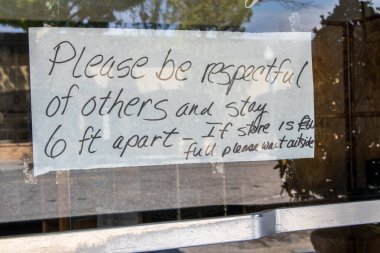 Please be respectful
of others and stay
6 ft apart - If store is
full please wait outside